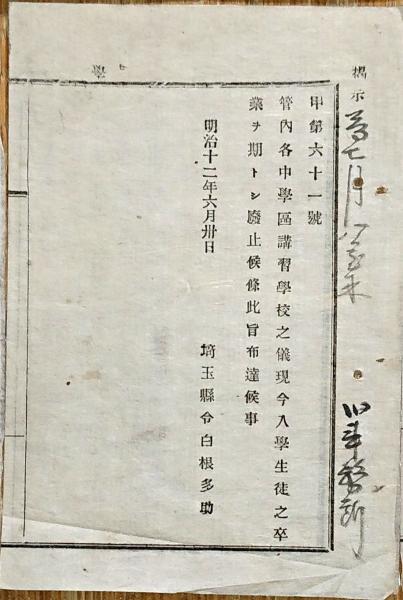 掲示
甲第六十一號
管內各中學區講習學校之儀現今入學生徒之卒
業ヲ期トシ廢止候條此旨布達候事
明治十二年六月卅日
埼玉縣令白根多助